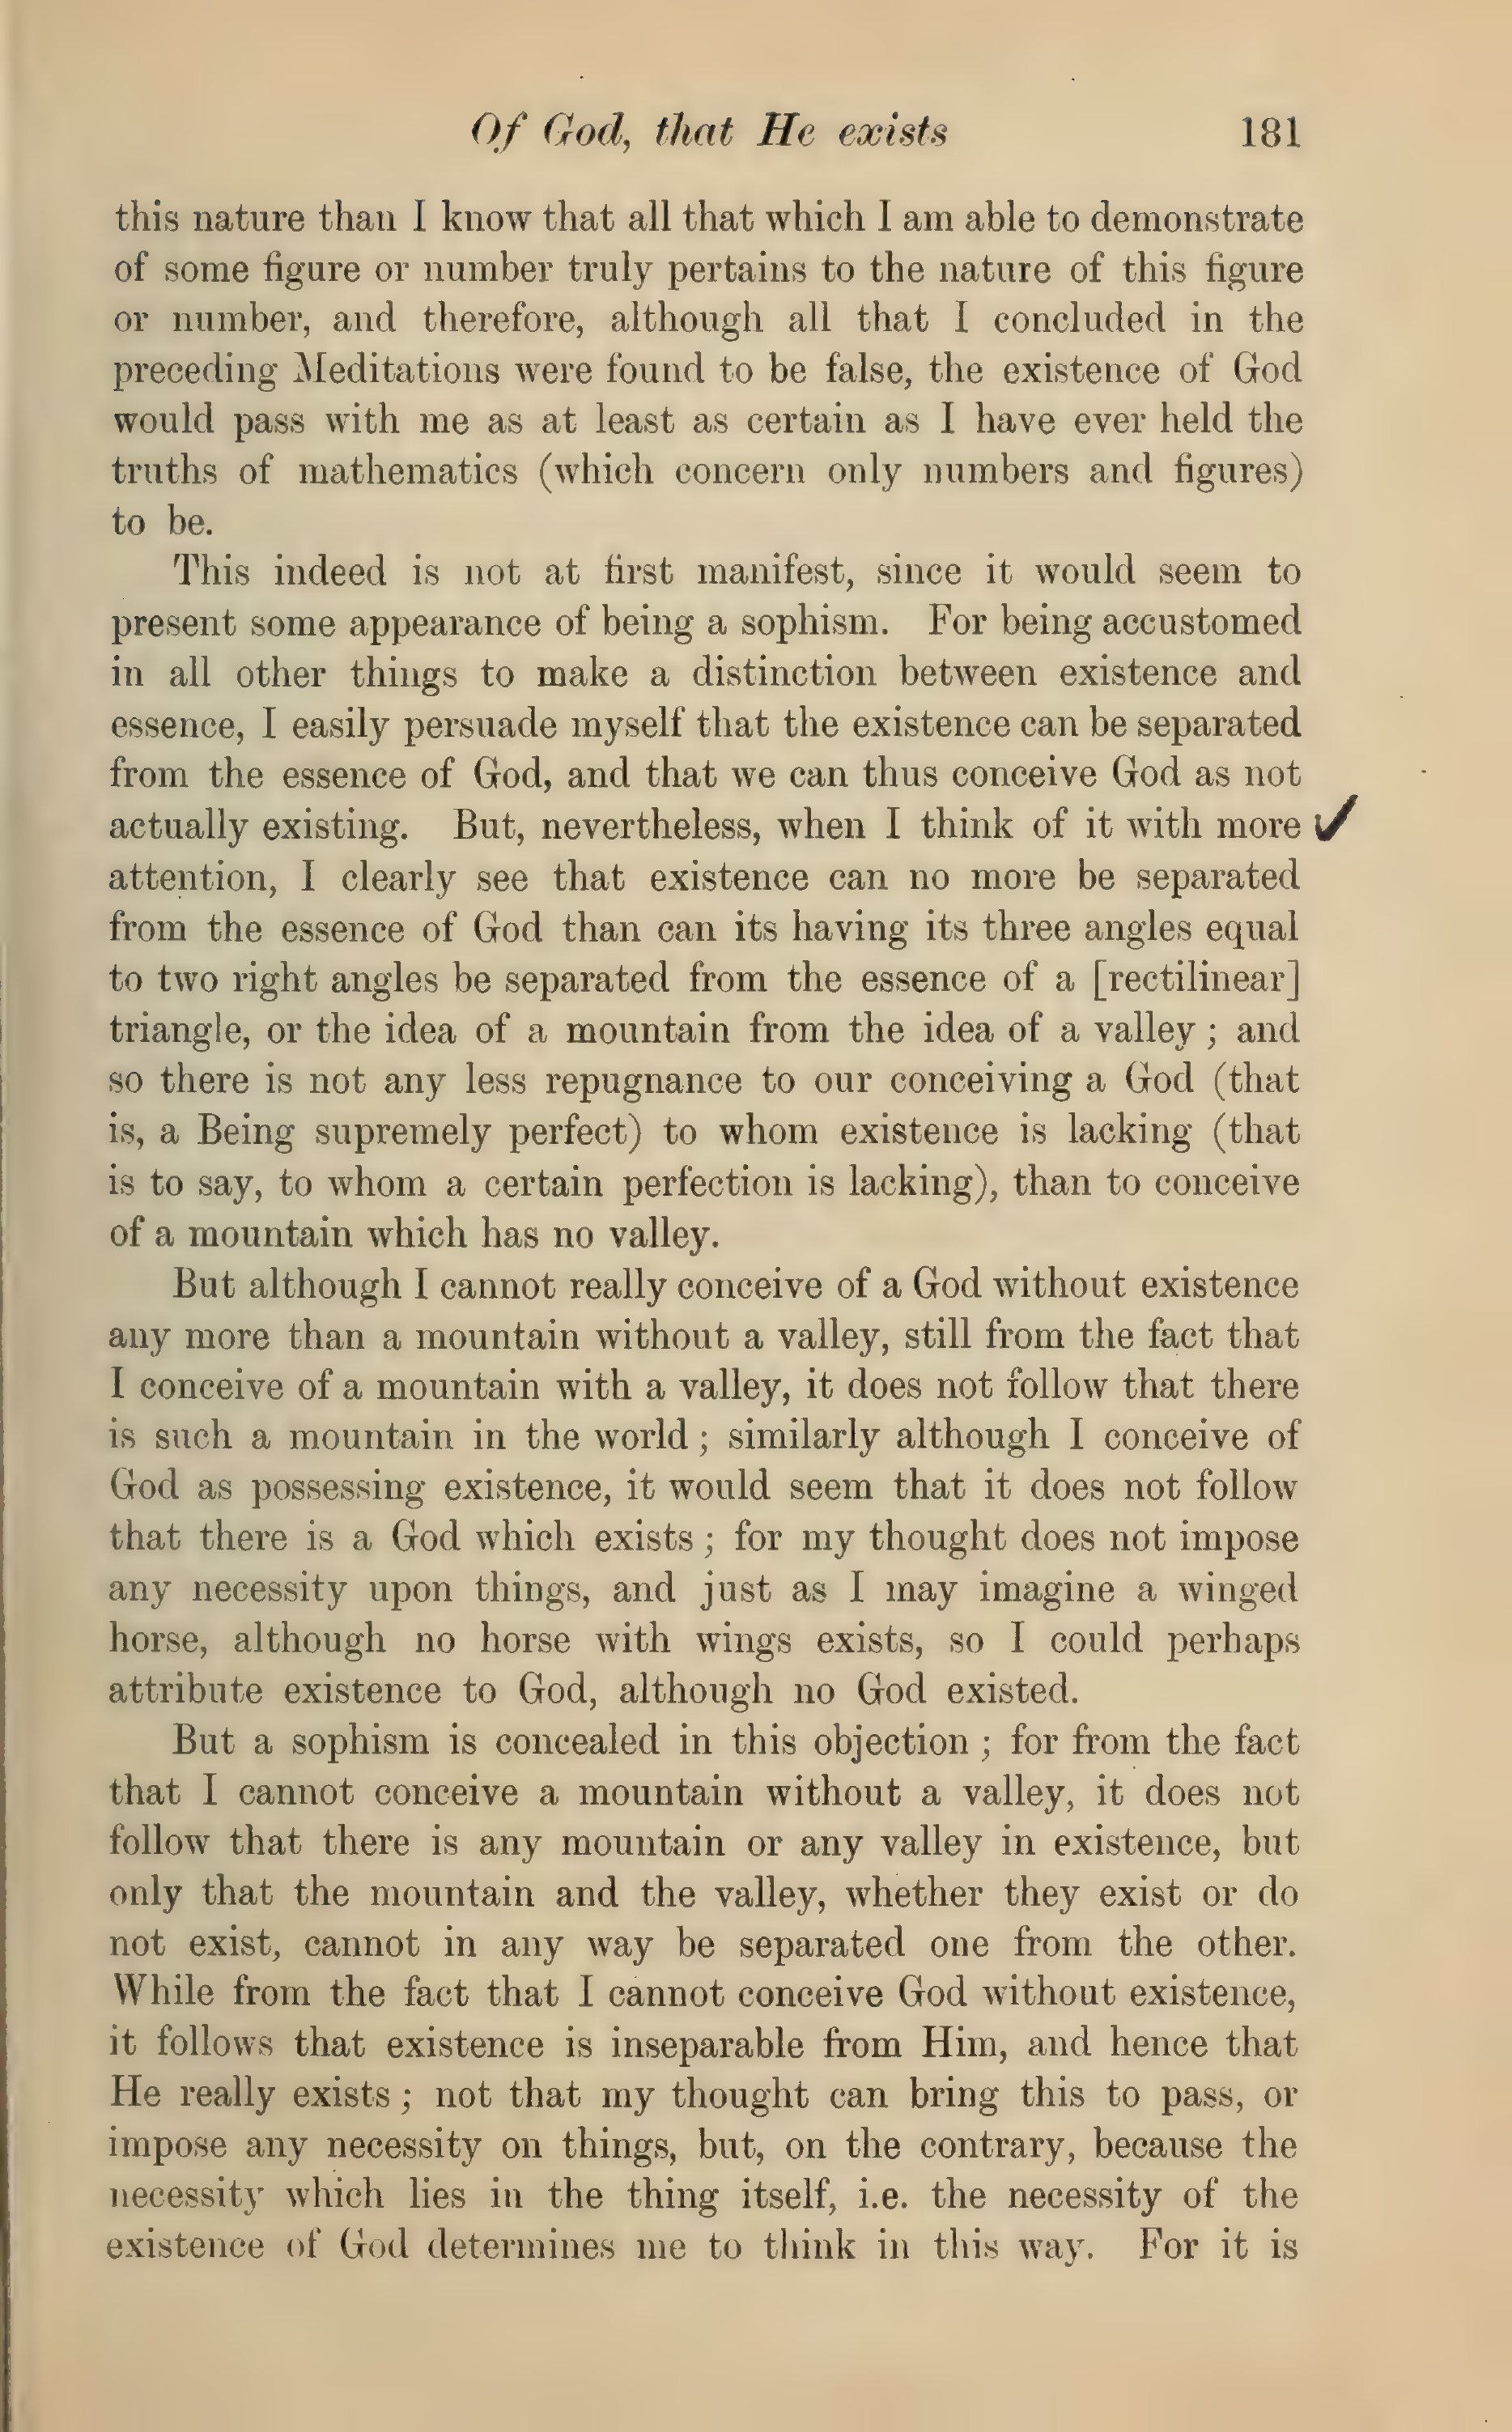 Of God, that He exists 181
this nature than I know that all that which I am able to demonstrate
of some figure or number truly pertains to the nature of this figure
or number, and therefore, although all that I concluded in the
preceding Meditations were found to be false, the existence of God
would pass with me as at least as certain as I have ever held the
truths of mathematics (which concern only numbers and figures)
to be.
This indeed is not at first manifest, since it would seem to
present some appearance of being a sophism. For being accustomed
in all other things to make a distinction between existence and
essence, I easily persuade myself that the existence can be separated
from the essence of God, and that we can thus conceive God as not
actually existing. But, nevertheless, when I think of it with more ✓
attention, I clearly see that existence can no more be separated
from the essence of God than can its having its three angles equal
to two right angles be separated from the essence of a [rectilinear]
triangle, or the idea of a mountain from the idea of a valley ; and
so there is not any less repugnance to our conceiving a God (that
is, a Being supremely perfect) to whom existence is lacking (that
is to say, to whom a certain perfection is lacking), than to conceive
of a mountain which has no valley.
But although I cannot really conceive of a God without existence
any more than a mountain without a valley, still from the fact that
I conceive of a mountain with a valley, it does not follow that there
is such a mountain in the world ; similarly although I conceive of
God as possessing existence, it would seem that it does not follow
that there is a God which exists ; for my thought does not impose
any necessity upon things, and just as I may imagine a winged
horse, although no horse with wings exists, so I could perhaps
attribute existence to God, although no God existed.
But a sophism is concealed in this objection ; for from the fact
that I cannot conceive a mountain without a valley, it does not
follow that there is any mountain or any valley in existence, but
only that the mountain and the valley, whether they exist or do
not exist, cannot in any way be separated one from the other.
While from the fact that I cannot conceive God without existence,
it follows that existence is inseparable from Him, and hence that
He really exists ; not that my thought can bring this to pass, or
impose any necessity on things, but, on the contrary, because the
necessity which lies in the thing itself, i.e. the necessity of the
existence of God determines me to think in this way. For it is